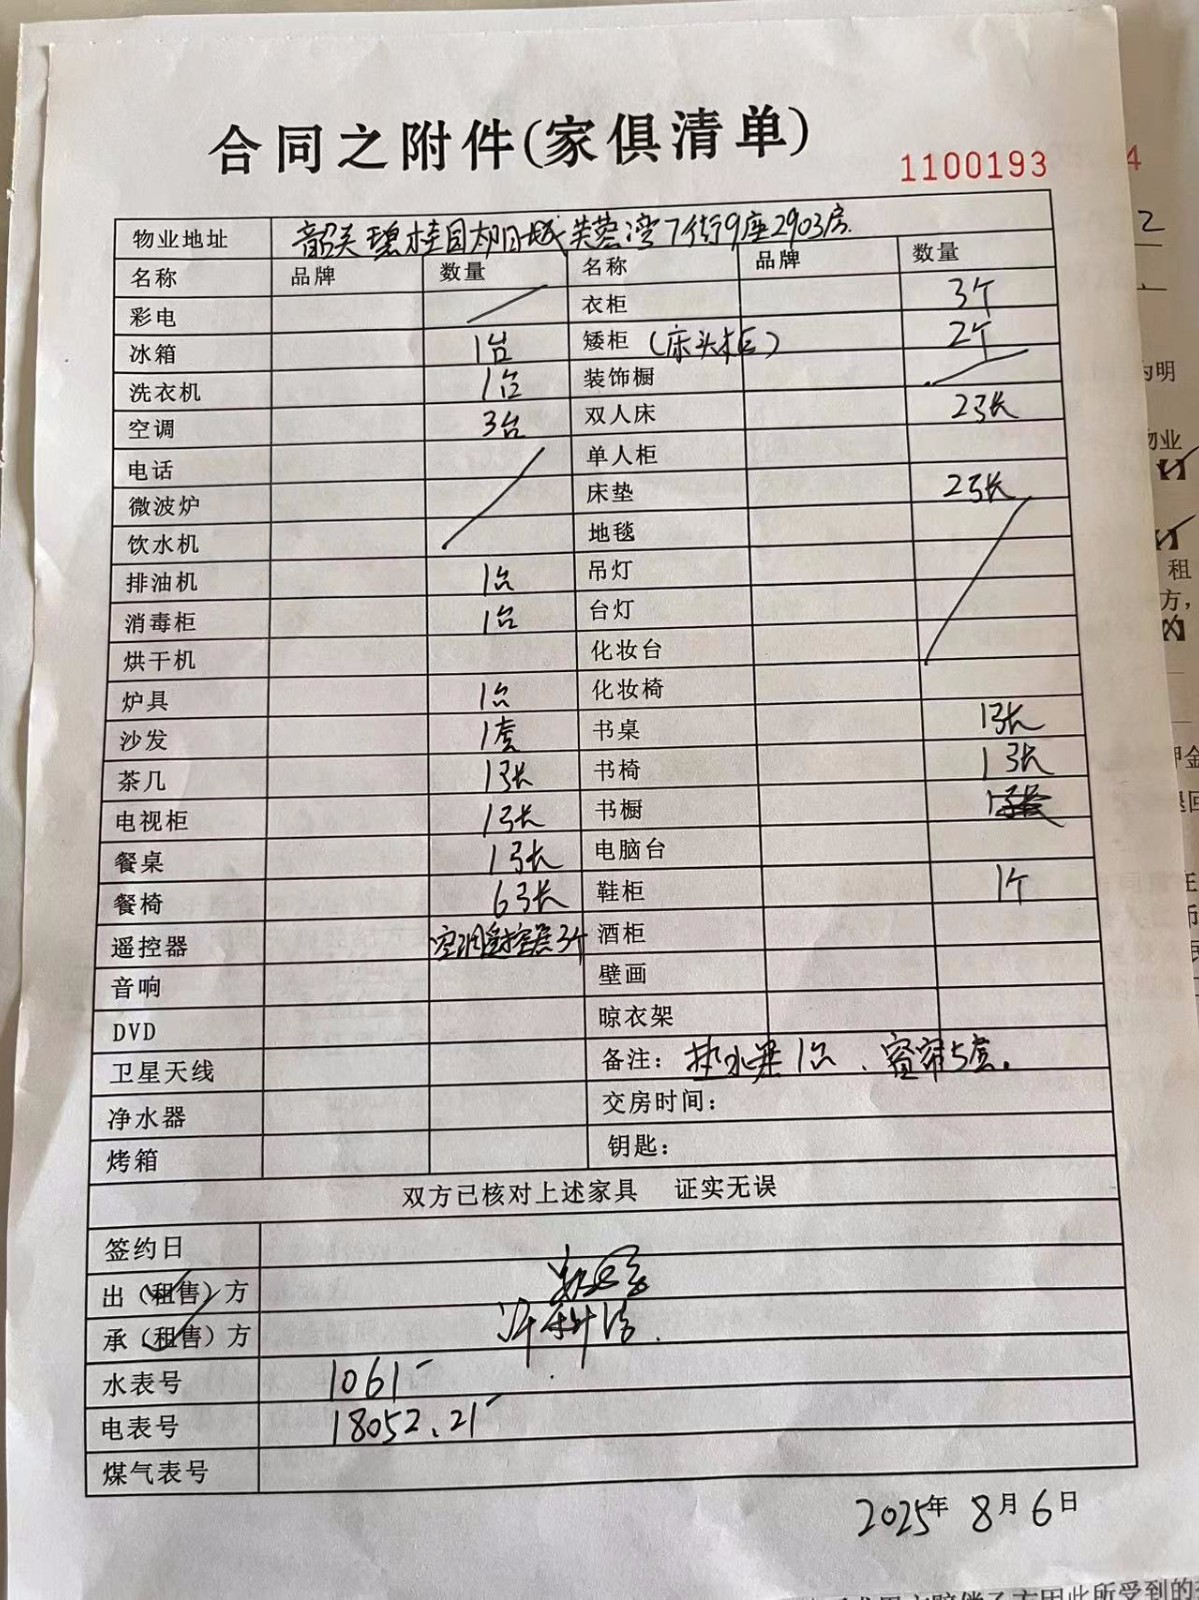 合同之附件(家俱清单)
1100193
物业地址 韶关碧桂园太阳城芙蓉湾7街9座2903房.
名称 品牌 数量 名称 品牌 数量
彩电 衣柜 3个
冰箱 1台 矮柜 (床头柜) 2个
洗衣机 1台 装饰橱
空调 3台 双人床 2张
电话 单人柜
微波炉 床垫 2张
饮水机 地毯
排油机 1台 吊灯
消毒柜 1台 台灯
烘干机 化妆台
炉具 1台 化妆椅
沙发 1套 书桌 1张
茶几 1张 书椅 1张
电视柜 1张 书橱
餐桌 1张 电脑台
餐椅 6张 鞋柜 1个
遥控器 空调遥控器3个 酒柜
音响 壁画
DVD 晾衣架
卫星天线 备注: 热水器1台、窗帘5套.
净水器 交房时间:
烤箱 钥匙:
双方已核对上述家具 证实无误
签约日
出(租售)方
承(租售)方
水表号 1061
电表号 18052.21
煤气表号
2025年 8月6日